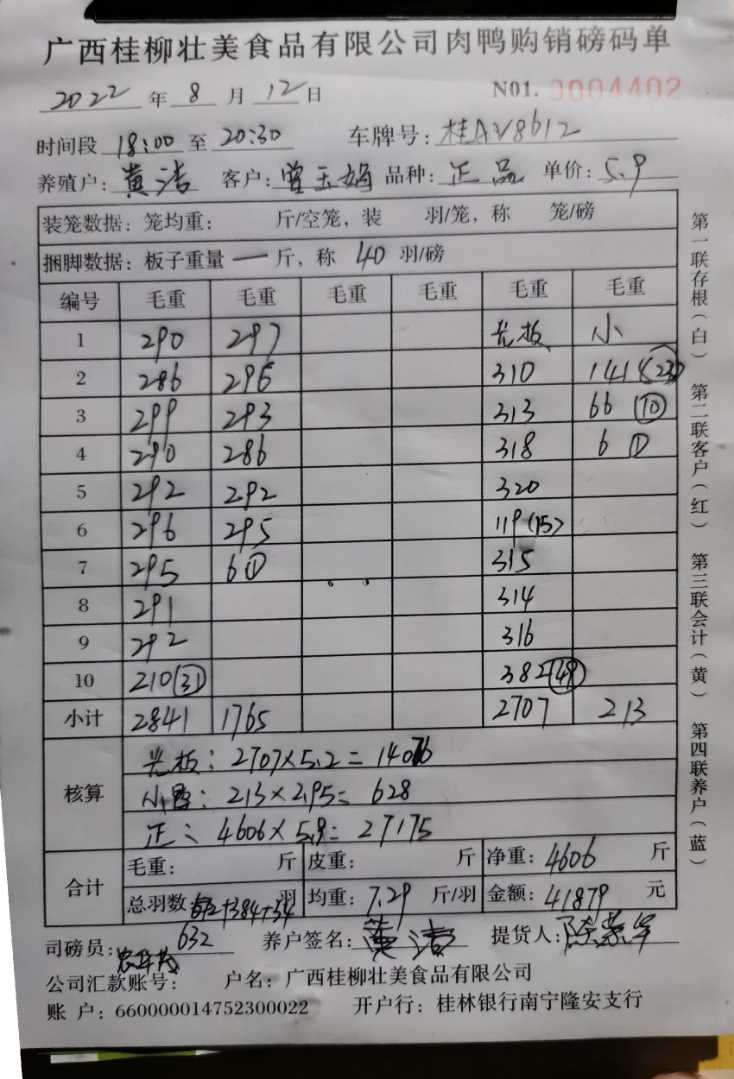 广西桂柳壮美食品有限公司肉鸭购销磅码单
2022 年 8 月 12 日 N01. 0004402
时间段 18:00 至 20:30 车牌号: 桂AV8612
养殖户: 黄洁 客户: 曾玉娟 品种: 正品 单价: 5.9
装笼数据: 笼均重: 斤/空笼, 装 羽/笼, 称 笼/磅
捆脚数据: 板子重量 一 斤, 称 40 羽/磅
编号 毛重 毛重 毛重 毛重 毛重 毛重
1 290 297 光板 小
2 286 296 310 141斤(23)
3 299 293 313 66 (10)
4 290 286 318 6 (1)
5 292 292 320
6 296 295 119 (15)
7 295 6(1) 315
8 291 314
9 292 316
10 210(31) 382(49)
小计 2841 1765 2707 213
核算 光板: 2707×5.2=14076
小: 213×2.95=628
正: 4606×5.9=27175
合计 毛重: 斤 皮重: 斤 净重: 4606 斤
总羽数 +384+34 羽 均重: 7.29 斤/羽 金额: 41879 元
632
司磅员: 养户签名: 黄洁 提货人:
公司汇款账号: 户名: 广西桂柳壮美食品有限公司
账户: 660000014752300022 开户行: 桂林银行南宁隆安支行
第一联存根(白) 第二联客户(红) 第三联会计(黄) 第四联养户(蓝)